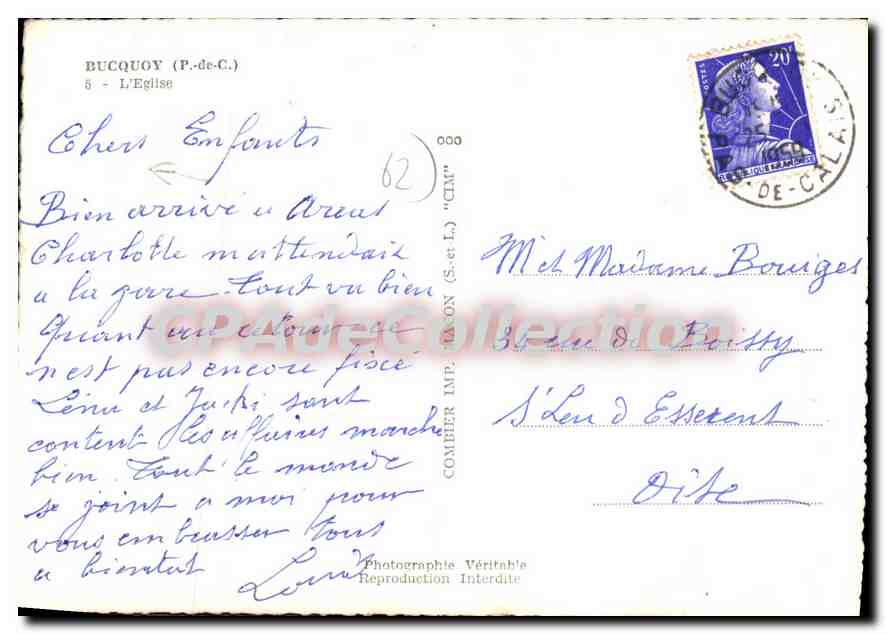 BUCQUOY (P.-de-C.)
5 - L'Eglise
Chers Enfants
62
Bien arrivé a Arras
Charlotte m attendait
a la gare Tout va bien
Quant au retour ce
n'est pas encore fixé
Léna et Jacki sont
content les affaires marche
bien. Tout le monde
se joint a moi pour
vous embrasser tous
a bientot
Louis
COMBIER IMP. MACON (S.-et-L.) "CIM"
Photographie Véritable
Reproduction Interdite
20F
POSTES
REPUBLIQUE FRANCAISE
25
1959
DE-CALAIS
M et Madame Bouiges
36 rue du Boissy
St Leu d Esserent
Oise
CPAdeCollection